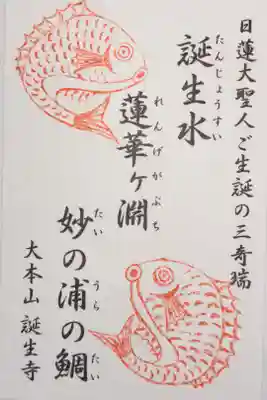 日蓮大聖人ご生誕の三奇瑞
たんじょうすい
誕生水
れんげがぶち
蓮華ヶ淵
たい うら たい
妙の浦の鯛
大本山 誕生寺